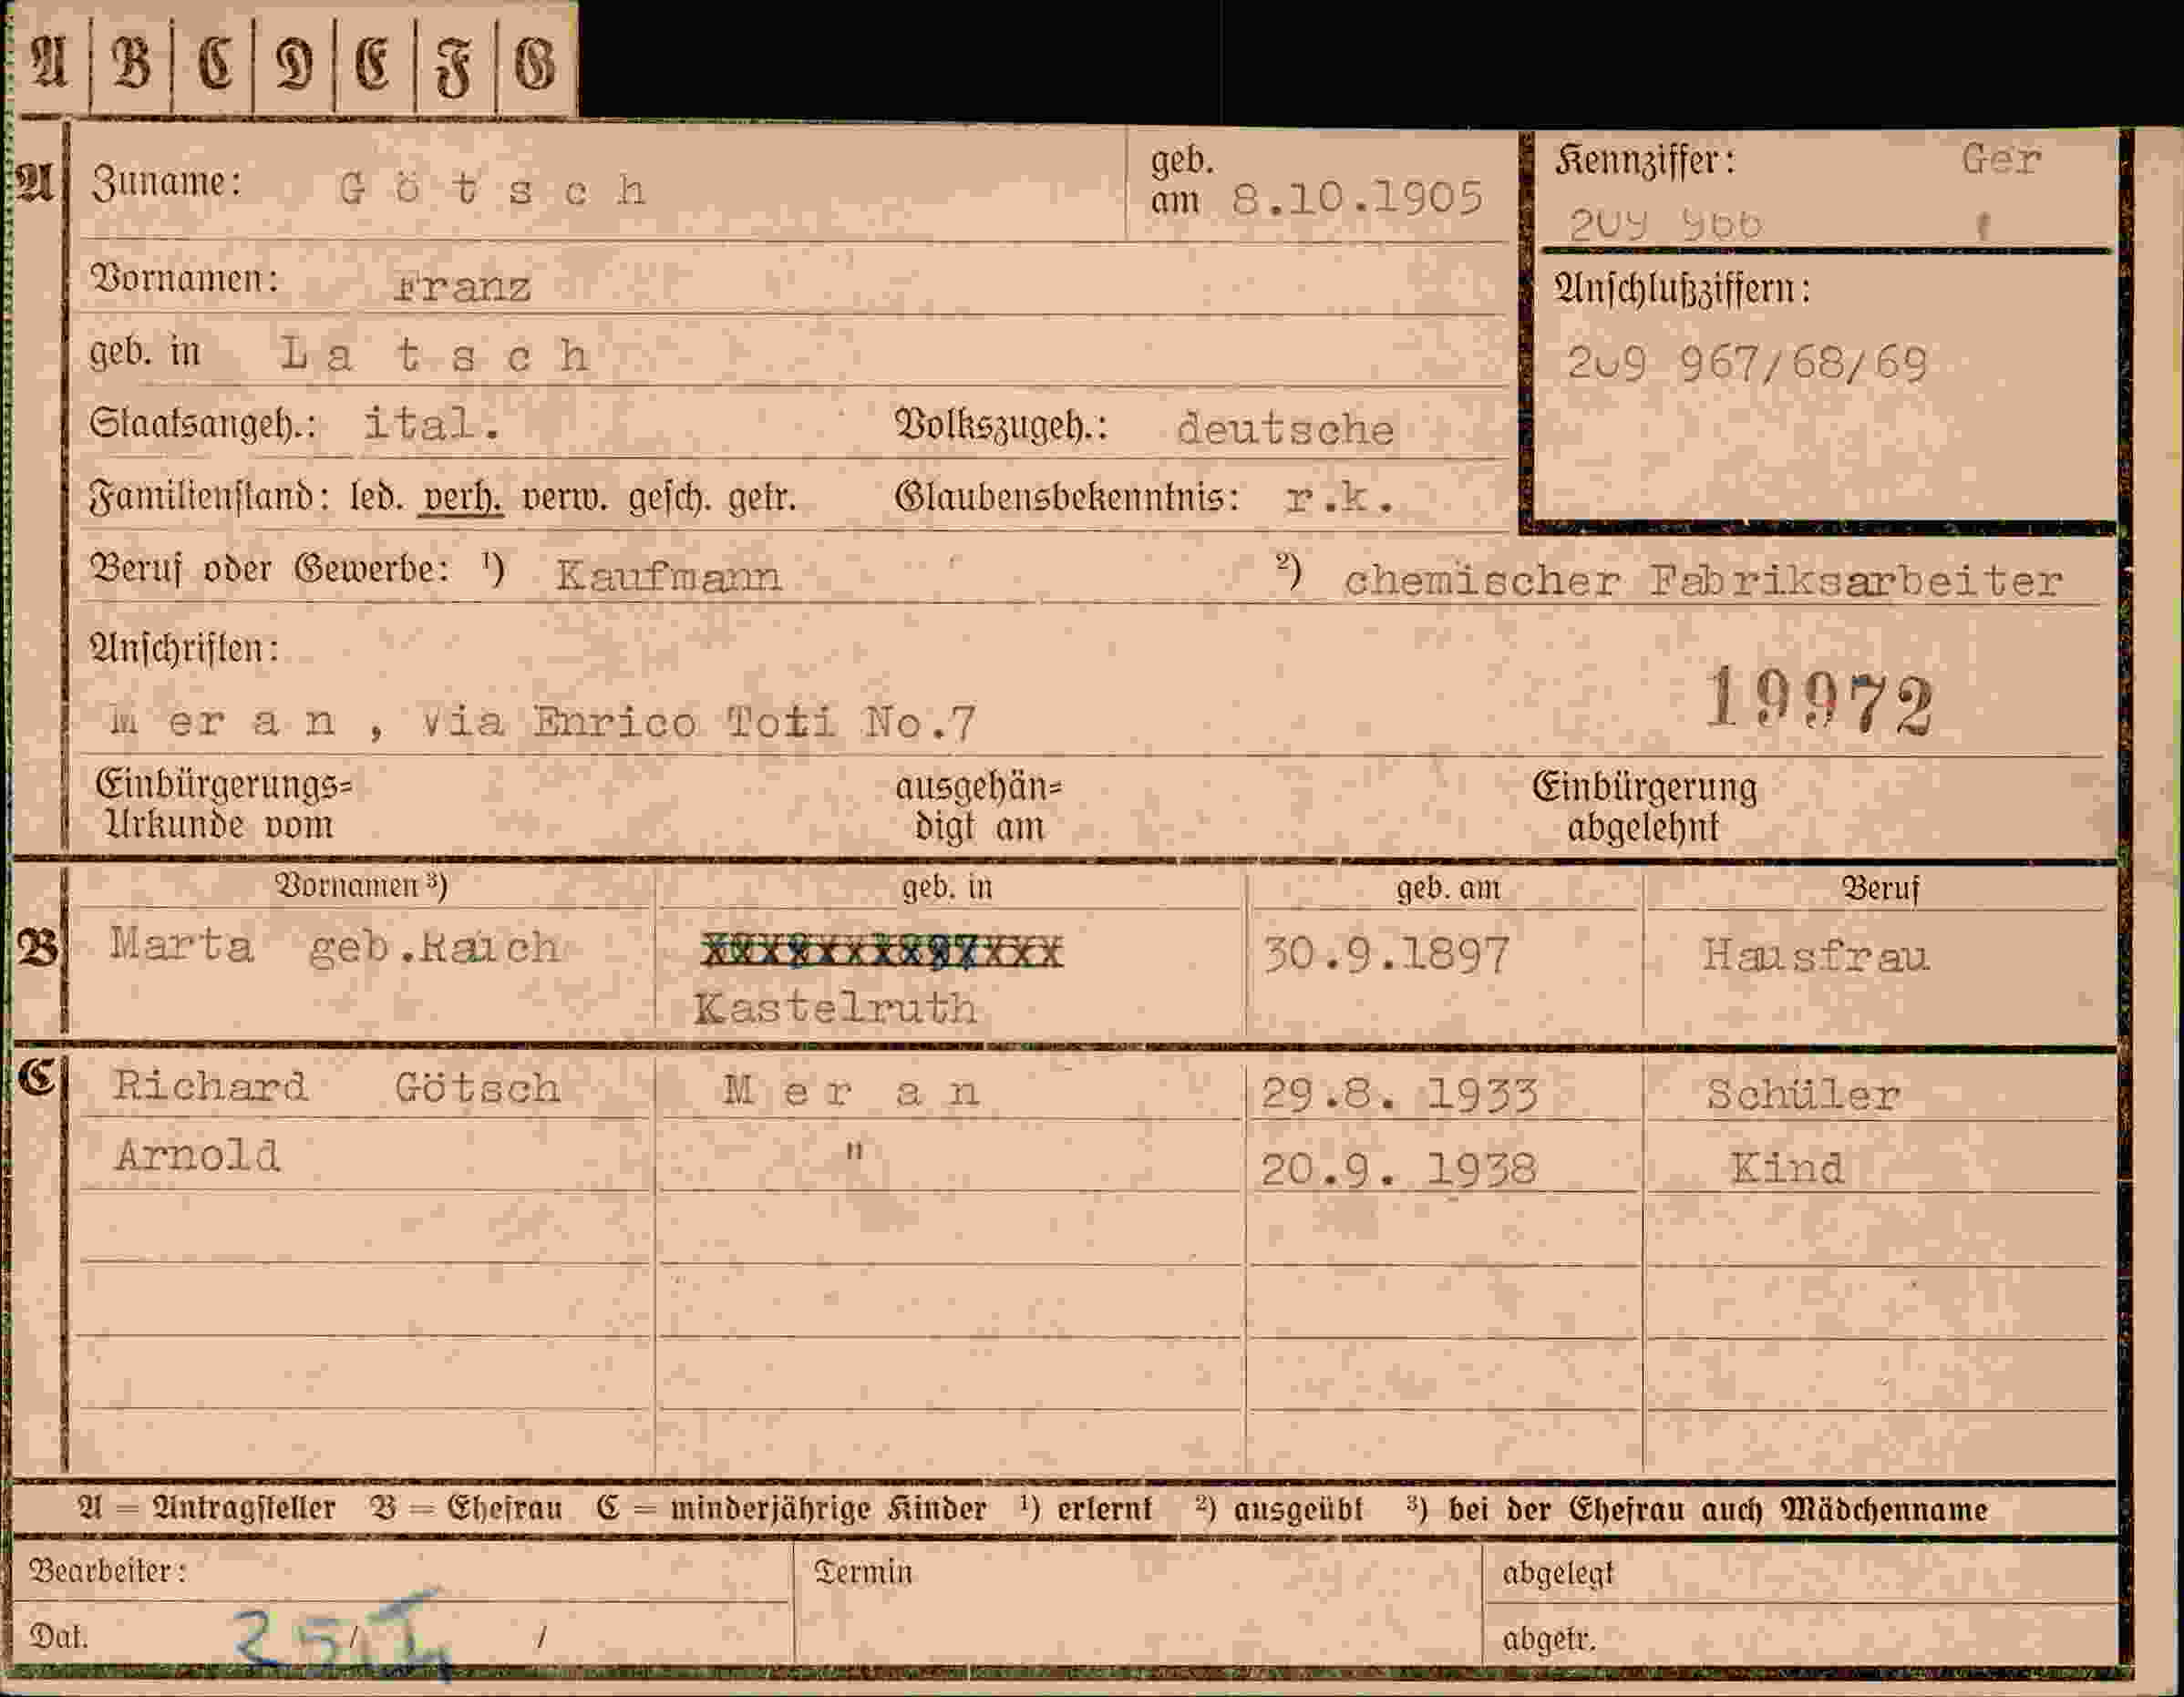 A B C D E F G
A Zuname: Götsch geb. am 8.10.1905
Kennziffer: Ger
209 966
Vornamen: Franz
Anschlußziffern:
geb. in Latsch
209 967/68/69
Staatsangeh.: ital. Volkszugeh.: deutsche
Familienstand: led. verh. verw. gesch. getr. Glaubensbekenntnis: r.k.
Beruf oder Gewerbe: ¹) Kaufmann ²) chemischer Fabriksarbeiter
Anschriften:
19972
Meran, via Enrico Toti No.7
Einbürgerungs= ausgehän= Einbürgerung
Urkunde vom digt am abgelehnt
Vornamen ³) geb. in geb. am Beruf
B Marta geb.Raich 30.9.1897 Hausfrau
Kastelruth
C Richard Götsch Meran 29.8. 1933 Schüler
Arnold " 20.9. 1938 Kind
A = Antragsteller B = Ehefrau C = minderjährige Kinder ¹) erlernt ²) ausgeübt ³) bei der Ehefrau auch Mädchenname
Bearbeiter: Termin abgelegt
Dat. 25/I / abgetr.